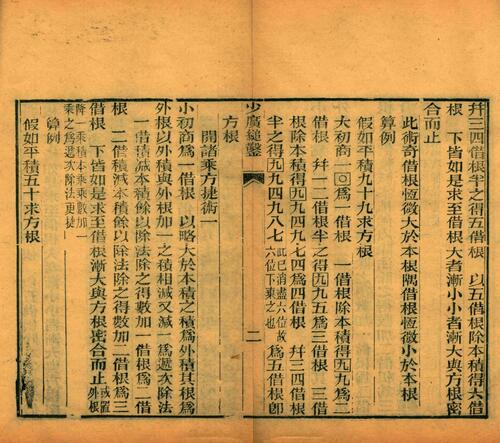 幷三四借根半之得五借根除本積得六借
根　下皆如是求至借根大者漸小小者漸大與方根密
合而止
此術奇借根恆微大於本根隅借根恆微小於本根
算例
假如平積九十九求方根
大初商一〇為一借根　一借根除本積得九九為二
借根　幷一二借根半之得九九五為三借根　三借
根除本積得九九四九七四為四借根　幷三四借根
半之得九九四九八七此已消盡六位故六位下棄之也為五借根卽
少廣縋鑿　二
方根
開諸乘方捷術一
小初商為一借根　以略大於本積之積為外積其根為
外根以外積與外根加一之積相減又減一為遞次除法
一借積減本積餘以除法除之得數加一借根為二借
根　二借積減本積餘以除法除之得數加二借根為三
借根　下皆如是求至借根漸大與方根密合而止或置外根
降一乘積本乘乘數加一乘之為遞次除法更捷
算例
假如平積五十求方根